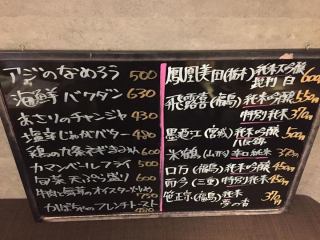 アジのなめろう 500
海鮮バクダン 630
あさりのチャンジャ 430
塩辛じゃがバター 480
鶏の九条ネギまみれ 600
カマンベールフライ 500
旬菜天ぷら盛り 600
牛肉と舞茸のオイスター炒め 750
かぼちゃのフレンチトースト
鳳凰美田(栃木) 純米大吟醸 600
飛露喜(福島) 純米吟醸 550
特別純米
墨廼江(宮城) 純米吟醸 500
米鶴(山形) 辛口純米
ロ万(福島) 純米吟醸
而今(三重) 特別純米
笹正宗(福島) 純米